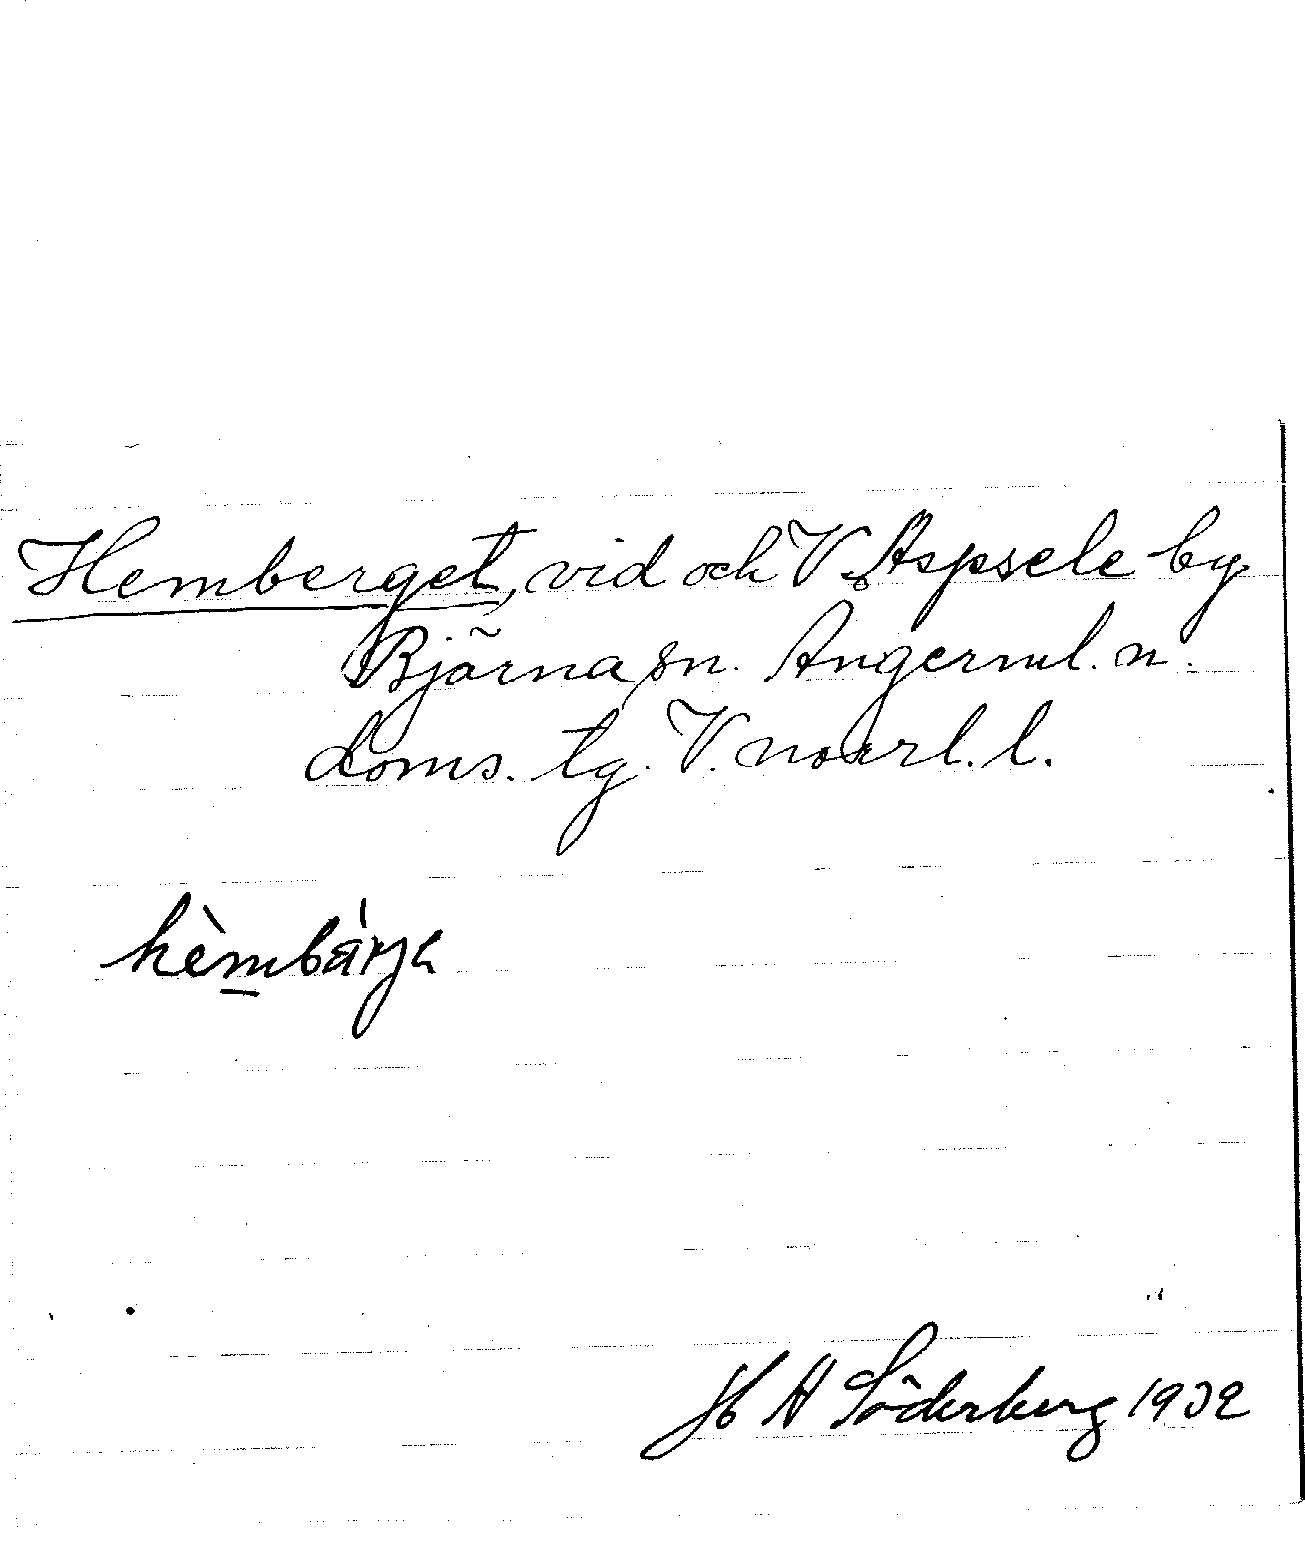 Hemberget, vid och V. Aspsele by
Björna sn. Ångerml. n.
doms. tg. V. norrl. l.
hèmbárja
H A Söderberg 1932